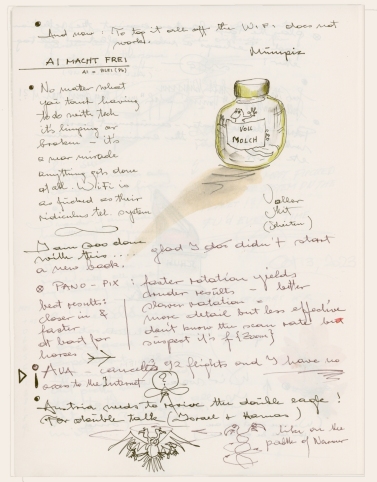 And now: To top it all off the WiFi does not
work.
AI MACHT FREI
No matter what
you touch having
to do with tech
it's limping or
broken - it's
a near miracle
anything gets done
at all. WiFi is
as fucked as their
ridiculous tel. system
VOLL
MOLCH
I am soo done
with this....
glad I didn't start
a new book.
PANO-PIX: faster rotation yields
results - better
slower rotation =
more detail but less effective
don't know the scan rate but
suspect it's f{Zoom}
best results:
closer in &
faster
at least for
AUA - cancelled 92 flights and I have no
access to the Internet
?
Austria needs to revive the double eagle!
For double talk (Israel + Hamas)
like on the